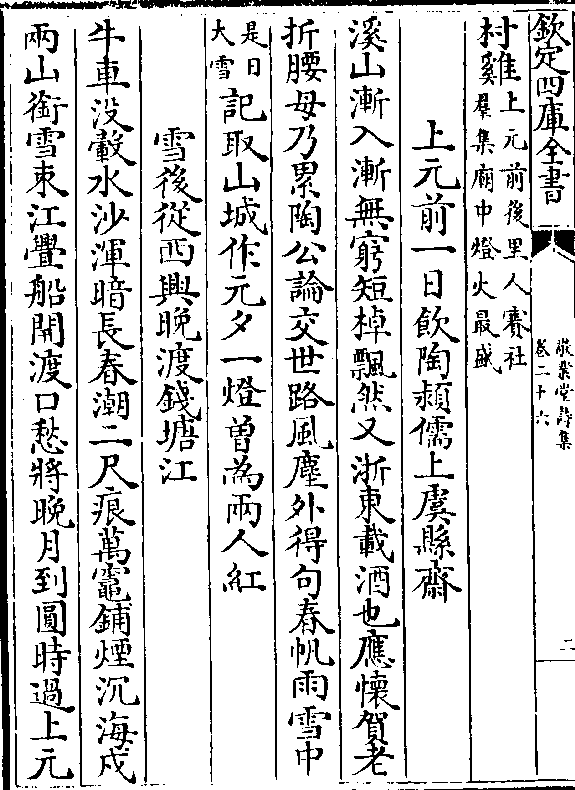 欽定四庫全書
敬業堂詩集
卷二十六
二
村雞上元前後里人賽社
羣集廟中燈火最盛
上元前一日飲陶潁儒上虞縣齋
溪山漸入漸無窮短棹飄然又浙東載酒也應懷賀老
折腰毋乃累陶公論交世路風塵外得句春帆雨雪中
是日
大雪記取山城作元夕一燈曽為兩人紅
雪後從西興晚渡錢塘江
牛車没轂水沙渾暗長春潮二尺痕萬竈鋪煙沉海戍
兩山銜雪束江疊船開渡口愁將晚月到圓時過上元